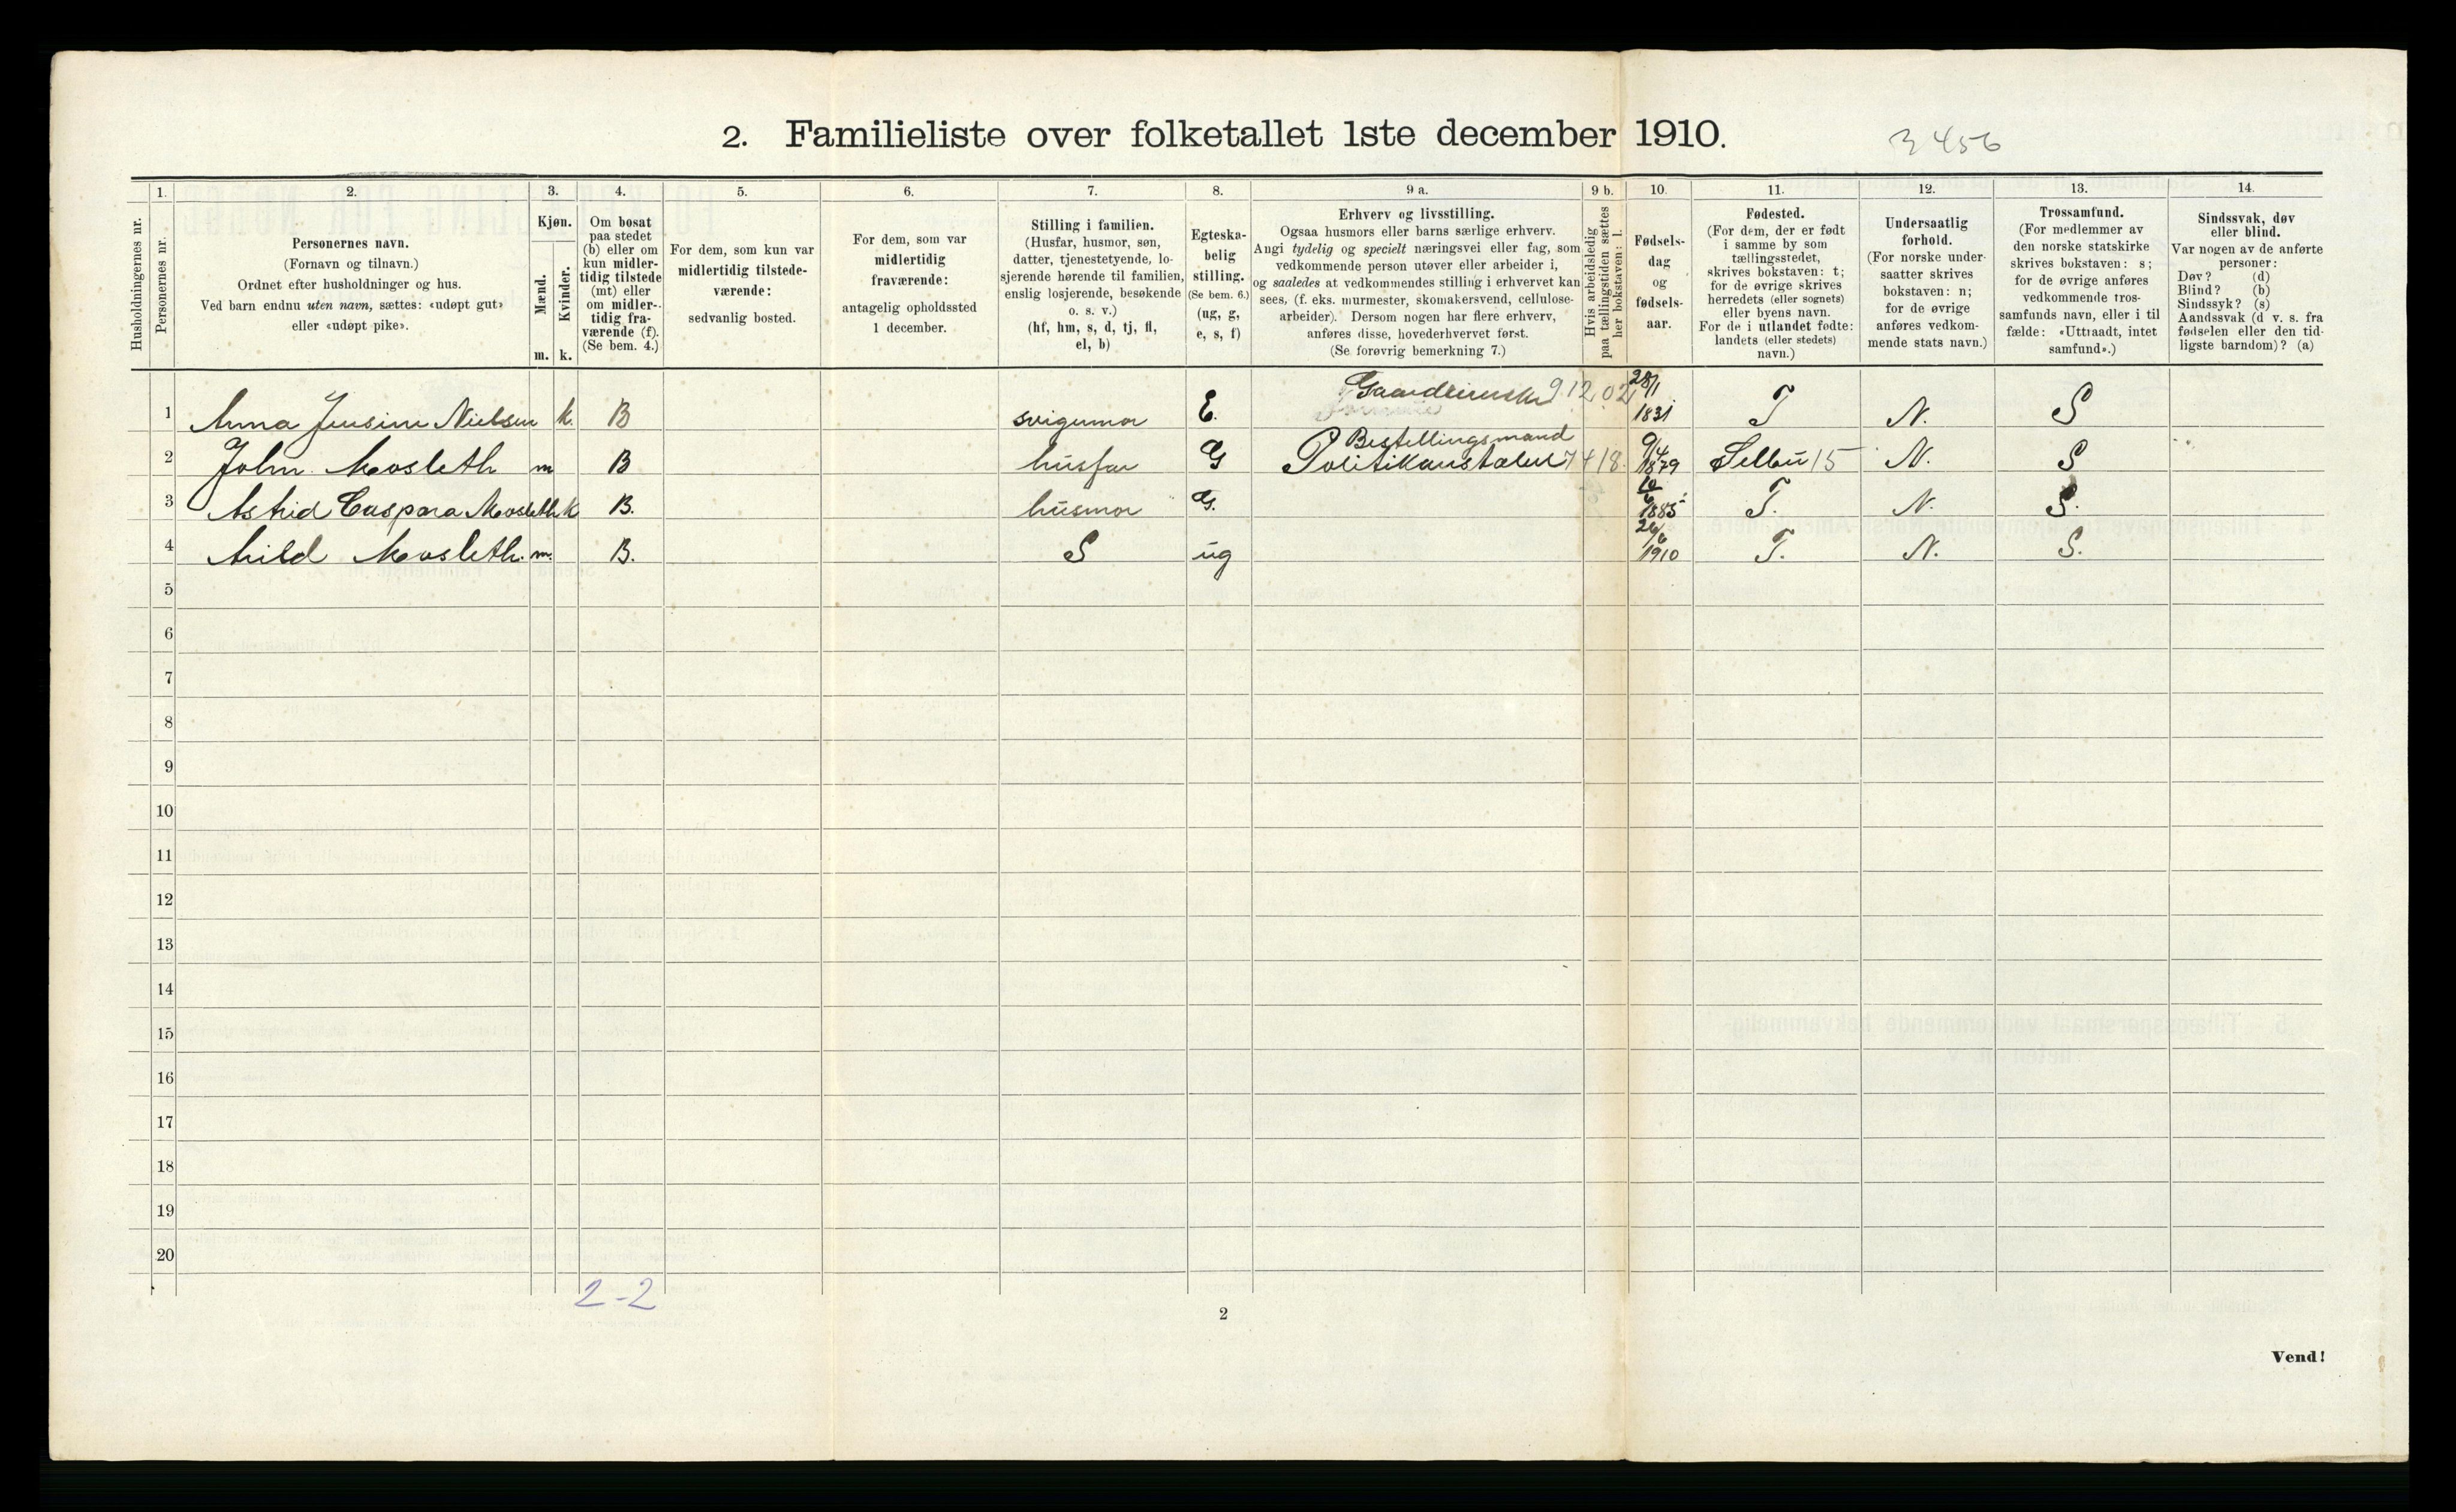 2. Familieliste over folketallet 1ste december 1910.
3 456
1. 2. 3. 4. 5. 6. 7. 8. 9 a. 9 b. 10. 11. 12. 13. 14.
Husholdningernes nr.
Personernes nr.
Personernes navn.
(Fornavn og tilnavn.)
Ordnet efter husholdninger og hus.
Ved barn endnu uten navn, sættes: «udøpt gut»
eller «udøpt pike».
Kjøn.
Mænd.
Kvinder.
m. k.
Om bosat
paa stedet
(b) eller om
kun midler-
tidig tilstede
(mt) eller
om midler-
tidig fra-
værende (f).
(Se bem. 4.)
For dem, som kun var
midlertidig tilstede-
værende:
sedvanlig bosted.
For dem, som var
midlertidig
fraværende:
antagelig opholdssted
1 december.
Stilling i familien.
(Husfar, husmor, søn,
datter, tjenestetyende, lo-
sjerende hørende til familien,
enslig losjerende, besøkende
o. s. v.)
(hf, hm, s, d, tj, fl,
el, b)
Egteska-
belig
stilling.
(Se bem. 6.)
(ug, g,
e, s, f)
Erhverv og livsstilling.
Ogsaa husmors eller barns særlige erhverv.
Angi tydelig og specielt næringsvei eller fag, som
vedkommende person utøver eller arbeider i,
og saaledes at vedkommendes stilling i erhvervet kan
sees, (f. eks. murmester, skomakersvend, cellulose-
arbeider). Dersom nogen har flere erhverv,
anføres disse, hovederhvervet først.
(Se forøvrig bemerkning 7.)
Hvis arbeidsledig
paa tællingstiden sættes
her bokstaven: l.
Fødsels-
dag
og
fødsels-
aar.
Fødested.
(For dem, der er født
i samme by som
tællingsstedet,
skrives bokstaven: t;
for de øvrige skrives
herredets (eller sognets)
eller byens navn.
For de i utlandet fødte:
landets (eller stedets)
navn.)
Undersaatlig
forhold.
(For norske under-
saatter skrives
bokstaven: n;
for de øvrige
anføres vedkom-
mende stats navn.)
Trossamfund.
(For medlemmer av
den norske statskirke
skrives bokstaven: s;
for de øvrige anføres
vedkommende tros-
samfunds navn, eller i til
fælde: «Uttraadt, intet
samfund».)
Sindssvak, døv
eller blind.
Var nogen av de anførte
personer:
Døv? (d)
Blind? (b)
Sindssyk? (s)
Aandssvak (d v. s. fra
fødselen eller den tid-
ligste barndom)? (a)
912.02
1 Anna Jensine Nielsen k. B svigermor E. 28/1 1831 T N. S
Bestellingsmand
2 John Mosleth m B husfar G Politikanstalen 7418. 9/4 1879 Selbu 15 N. S
3 Astrid Caspara Mosleth k B. husmor G. 10/6 1885 T. N. S.
4 Arild Mosleth. m. B. S ug 26/6 1910 T. N. S.
5
6
7
8
9
10
11
12
13
14
15
16
17
18
19
20
2-2
2
Vend!